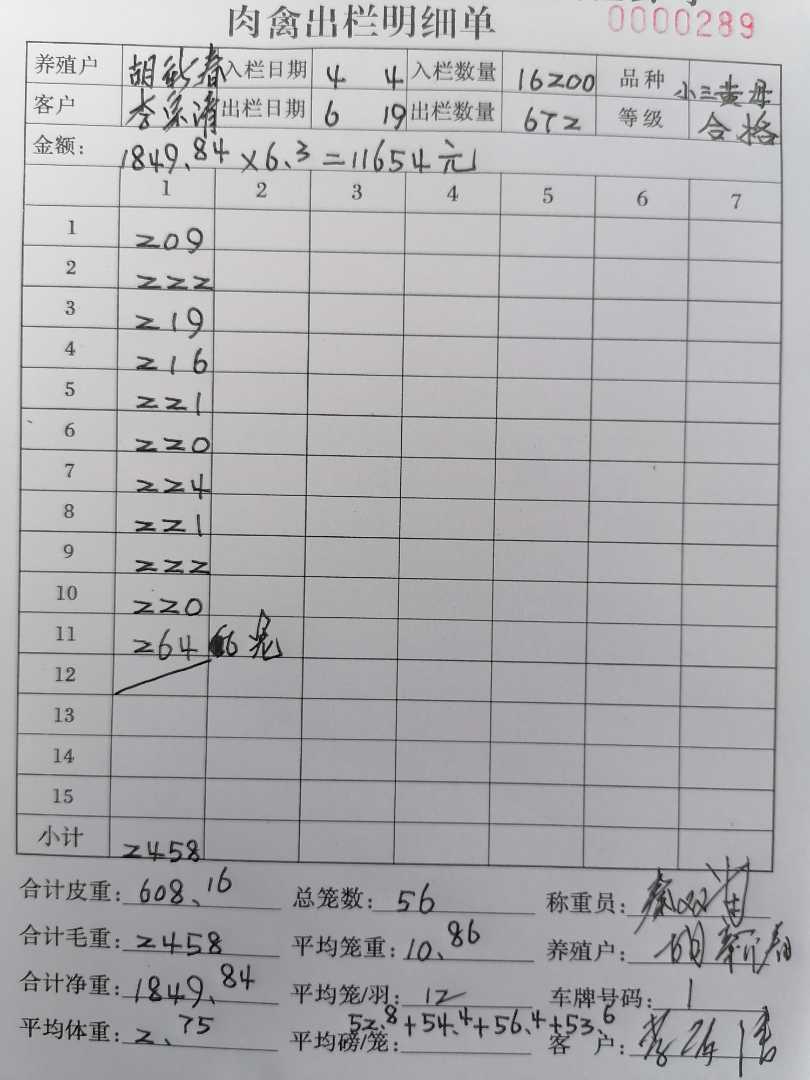 肉禽出栏明细单
0000289
养殖户 胡新春 入栏日期 4 4 入栏数量 16200 品种 小三黄母
客户 李 清 出栏日期 6 19 出栏数量 672 等级 合格
金额: 1849.84×6.3=11654元
1 2 3 4 5 6 7
1 209
2 222
3 219
4 216
5 221
6 220
7 224
8 221
9 222
10 220
11 264 6笼
12
13
14
15
小计 2458
合计皮重: 608.16 总笼数: 56 称重员:
合计毛重: 2458 平均笼重: 10.86 养殖户: 胡新春
合计净重: 1849.84 平均笼/羽: 12 车牌号码: 1
平均体重: 2.75 平均磅/笼: 52.8+54.4+56.4+53.6 客户: